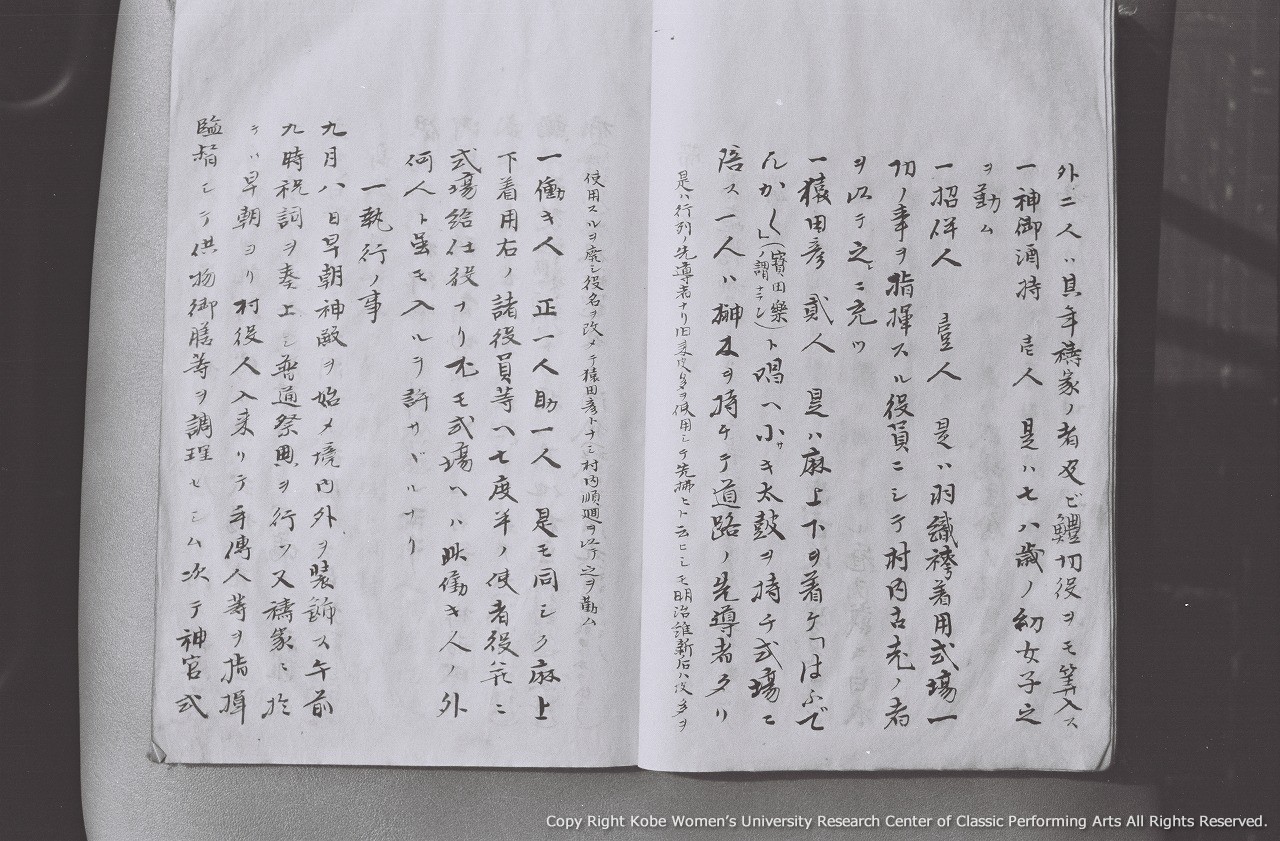 外ニ人ハ具年祷家ノ者及ビ鱧切役ヲモ算入ス
一神御酒持 壱人 是ハ七八歳ノ幼女子之
ヲ勤ム
一招伴人 壹人 是ハ羽織袴着用式場一
切ノ事ヲ指揮スル役員ニシテ村内古老ノ者
ヲ以テ之ニ充ツ
一猿田彦 貳人 是ハ麻上下ヲ着ケ「はふで
んがく」(寶田樂ノ謂ナラン)ト唱ヘ小サキ太鼓ヲ持チ式場ニ
陪ス一人ハ榊ヲ持チテ道路ノ先導者タリ
是ハ行列ノ先導者ナリ旧来皮多ヲ使用シテ先拂ヒト云ヒシモ明治維新后ハ皮多ヲ
使用スルヲ廃シ役名ヲ改メテ猿田彦トナシ村内順廻ヲ以テ之ヲ勤ム
一働キ人 正一人助一人 是モ同シク麻上
下着用右ノ諸役員等ヘ七度半ノ使者役並ニ
式場給仕役ナリ尤モ式場ヘハ此働キ人ノ外
何人ト虽モ入ルヲ許サヾルナリ
一執行ノ事
九月八日早朝神殿ヲ始メ境内外ヲ装飾ス午前
九時祝詞ヲ奏上シ普通祭典ヲ行フ又祷家ニ於
テハ早朝ヨリ村役人入来リテ手傳人等ヲ指揮
監督シテ供物御膳等ヲ調理セシム次テ神官式
Copy Right Kobe Women's University Research Center of Classic Performing Arts All Rights Reserved.